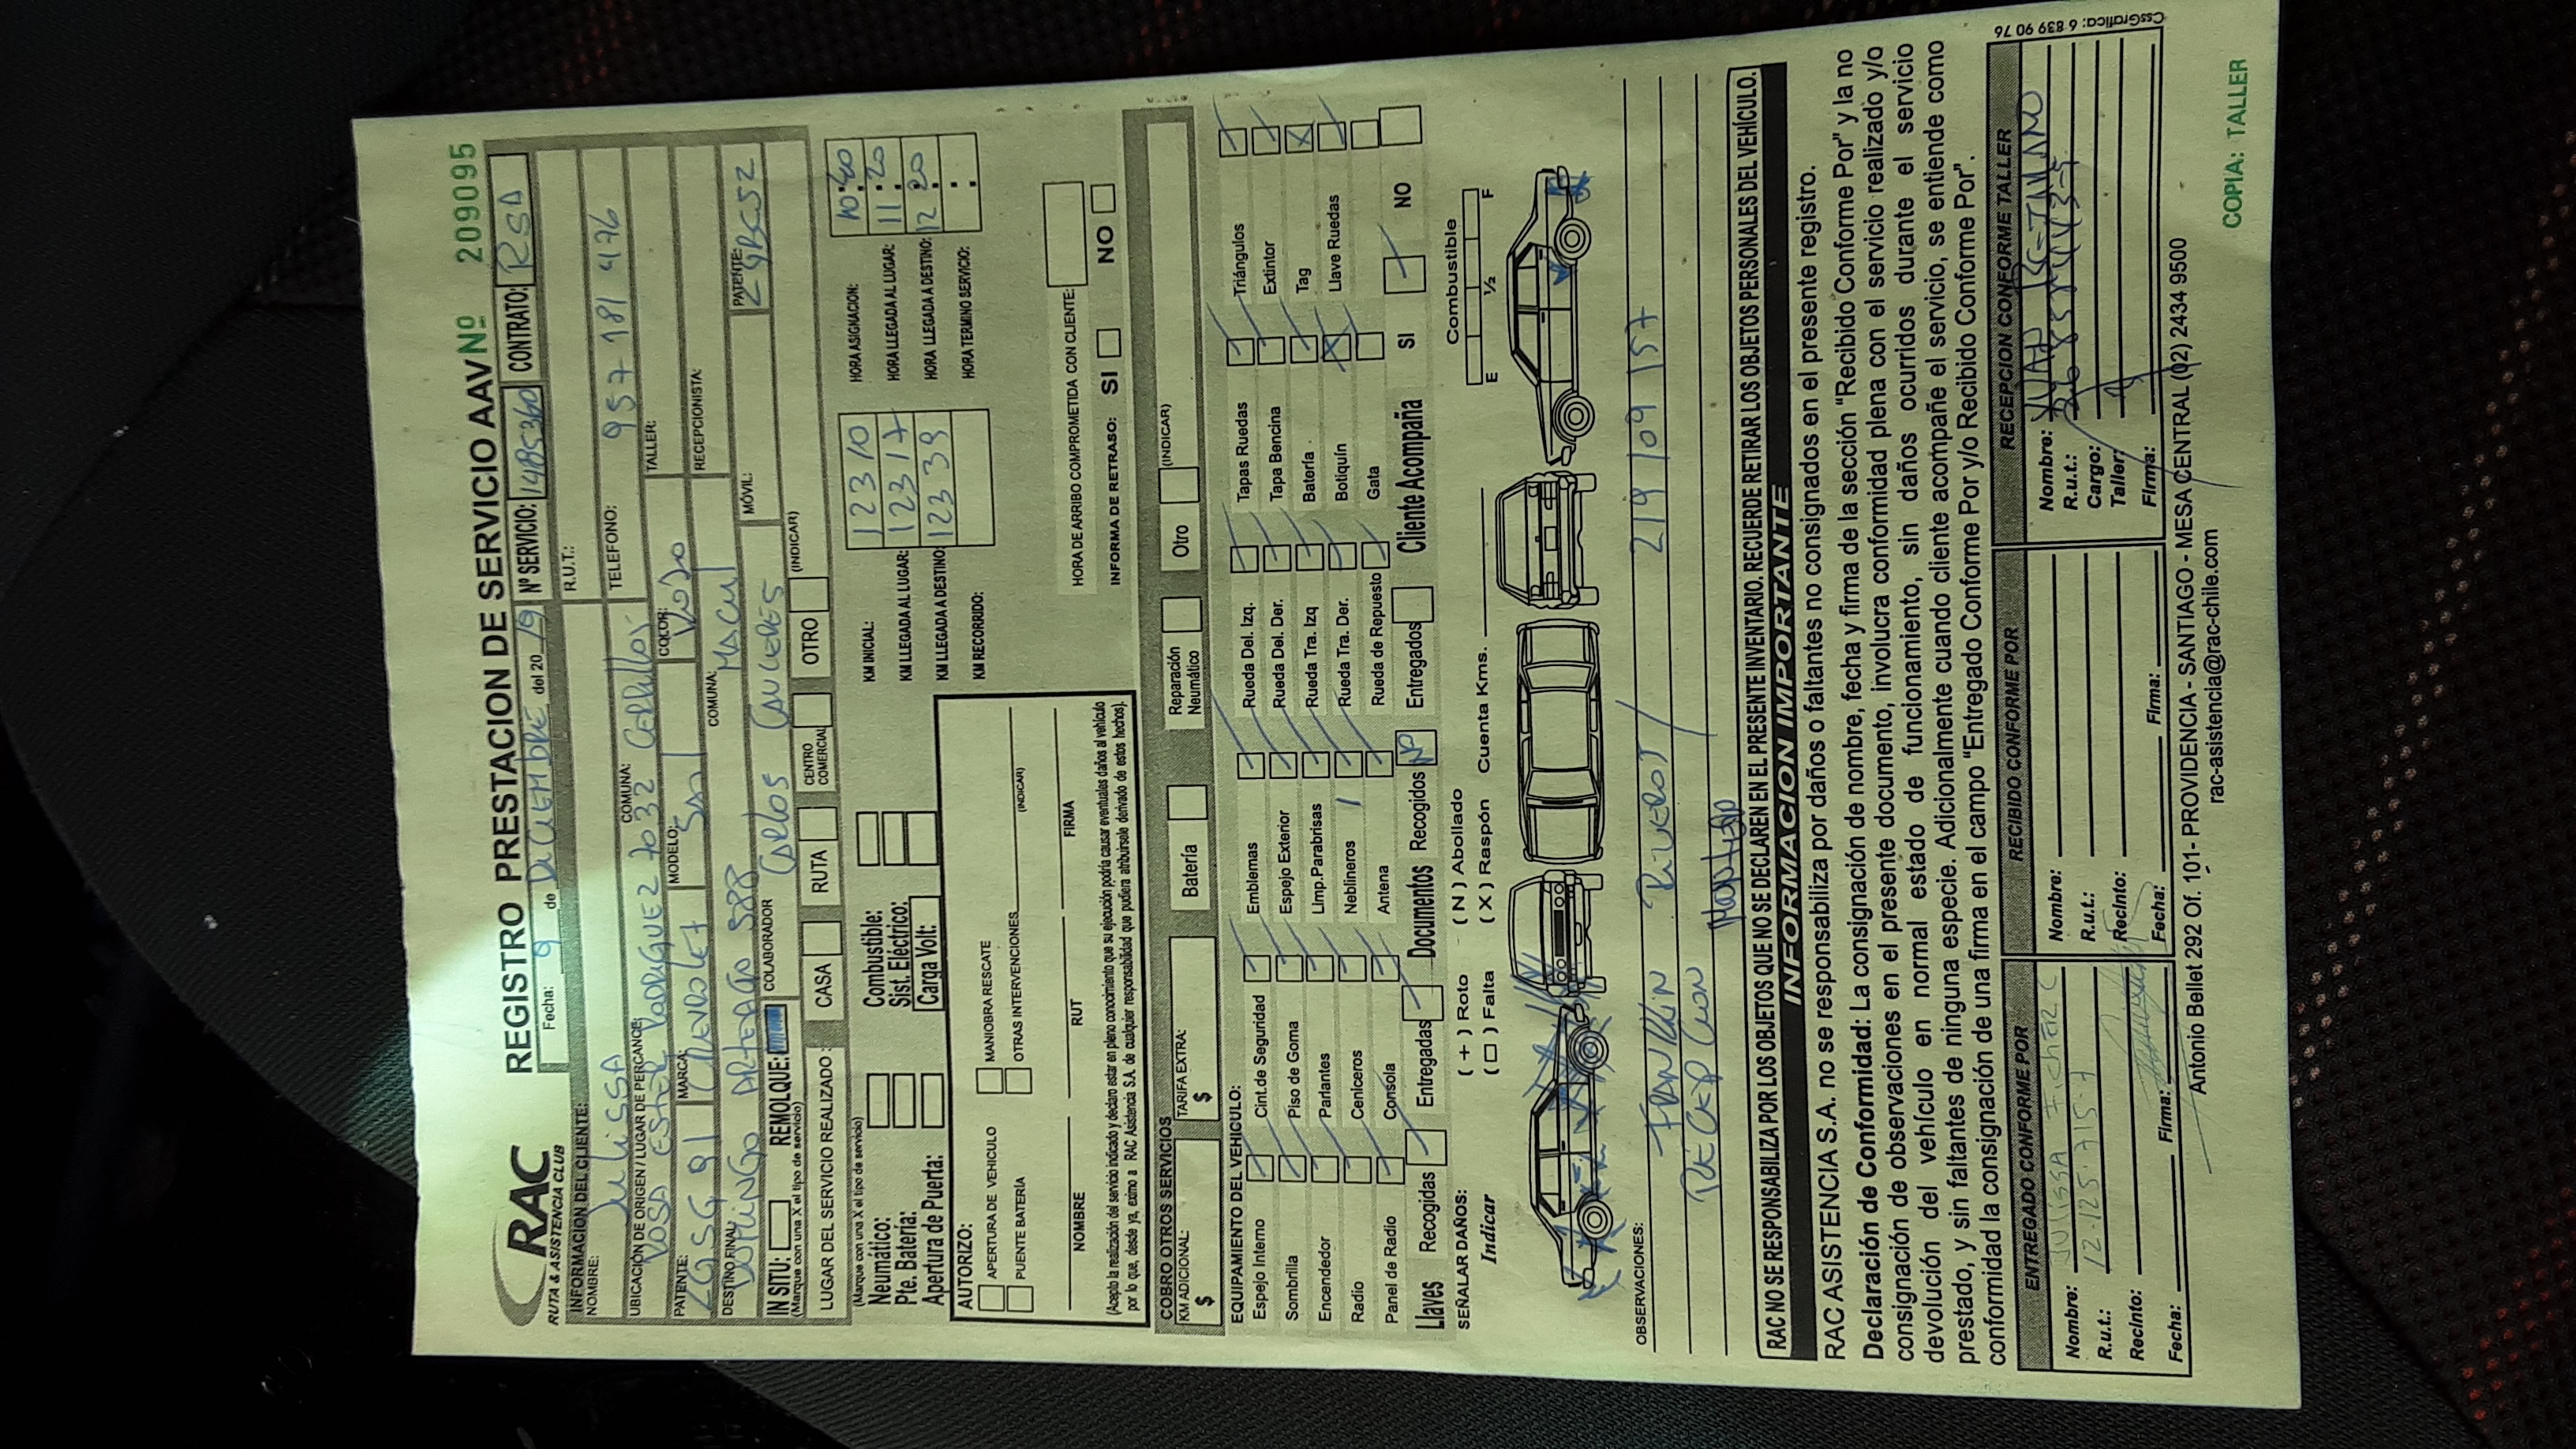 RAC
RUTA & ASISTENCIA CLUB
REGISTRO PRESTACION DE SERVICIO AAV Nº 209095
Fecha: 9 de DiCiEMBRE del 20 19 Nº SERVICIO: 1485360 CONTRATO: RSA
INFORMACION DEL CLIENTE:
NOMBRE: Julissa R.U.T.:
UBICACIÓN DE ORIGEN / LUGAR DE PERCANCE: COMUNA: TELEFONO: 957 181 476
ROSA ESTER RODRIGUEZ 7032 CERRILLOS
PATENTE: MARCA: CHEVROLET MODELO: SAIL COLOR: ROJO TALLER:
DESTINO FINAL: DOMINGO ARTEAGO 588 COMUNA: MACUL RECEPCIONISTA:
IN SITU: REMOLQUE: COLABORADOR Carlos CANCERES MÓVIL: PATENTE:
(Marque con una X el tipo de servicio)
LUGAR DEL SERVICIO REALIZADO : CASA RUTA CENTRO COMERCIAL OTRO (INDICAR)
(Marque con una X el tipo de servicio)
Neumático: Combustible:
Pte. Batería: Sist. Eléctrico:
Apertura de Puerta: Carga Volt:
KM INICIAL: 12310 HORA ASIGNACION: 10:40
KM LLEGADA AL LUGAR: 12317 HORA LLEGADA AL LUGAR: 11:20
KM LLEGADA A DESTINO: 12339 HORA LLEGADA A DESTINO: 12:20
KM RECORRIDO: HORA TERMINO SERVICIO:
AUTORIZO:
APERTURA DE VEHICULO MANIOBRA RESCATE
PUENTE BATERÍA OTRAS INTERVENCIONES (INDICAR)
NOMBRE RUT FIRMA
(Acepto la realización del servicio indicado y declaro estar en pleno conocimiento que su ejecución podría causar eventuales daños al vehículo
por lo que, desde ya, eximo a RAC Asistencia S.A. de cualquier responsabilidad que pudiera atribuírsele derivado de estos hechos).
HORA DE ARRIBO COMPROMETIDA CON CLIENTE:
INFORMA DE RETRASO: SI NO
COBRO OTROS SERVICIOS
KM ADICIONAL: $ TARIFA EXTRA: $ Batería Reparación Neumático Otro (INDICAR)
EQUIPAMIENTO DEL VEHICULO:
Espejo Interno Cint.de Seguridad Emblemas Rueda Del. Izq. Tapas Ruedas Triángulos
Sombrilla Piso de Goma Espejo Exterior Rueda Del. Der. Tapa Bencina Extintor
Encendedor Parlantes Limp.Parabrisas Rueda Tra. Izq Batería Tag
Radio Ceniceros Neblineros Rueda Tra. Der. Botiquín Llave Ruedas
Panel de Radio Consola Antena Rueda de Repuesto Gata
Llaves Recogidas Entregadas Documentos Recogidos NO Entregados Cliente Acompaña SI NO
SEÑALAR DAÑOS: ( + ) Roto ( N ) Abollado
Indicar ( □ ) Falta ( X ) Raspón Cuenta Kms. Combustible
E 1/2 F
OBSERVACIONES:
FRANKLiN RiVEROS / 219 109 157
RECEPCiON
RAC NO SE RESPONSABILIZA POR LOS OBJETOS QUE NO SE DECLAREN EN EL PRESENTE INVENTARIO. RECUERDE RETIRAR LOS OBJETOS PERSONALES DEL VEHÍCULO.
INFORMACION IMPORTANTE
RAC ASISTENCIA S.A. no se responsabiliza por daños o faltantes no consignados en el presente registro.
Declaración de Conformidad: La consignación de nombre, fecha y firma de la sección "Recibido Conforme Por" y la no
consignación de observaciones en el presente documento, involucra conformidad plena con el servicio realizado y/o
devolución del vehículo en normal estado de funcionamiento, sin daños ocurridos durante el servicio
prestado, y sin faltantes de ninguna especie. Adicionalmente cuando cliente acompañe el servicio, se entiende como
conformidad la consignación de una firma en el campo "Entregado Conforme Por y/o Recibido Conforme Por".
ENTREGADO CONFORME POR RECIBIDO CONFORME POR RECEPCION CONFORME TALLER
Nombre: JULISSA Nombre: Nombre:
R.u.t.: 12.125.715-7 R.u.t.: R.u.t.:
Recinto: Recinto: Cargo:
Taller:
Fecha: Firma: Fecha: Firma: Firma:
Antonio Bellet 292 Of. 101- PROVIDENCIA - SANTIAGO - MESA CENTRAL (02) 2434 9500
rac-asistencia@rac-chile.com
CssGrafica: 6 839 90 76
COPIA: TALLER